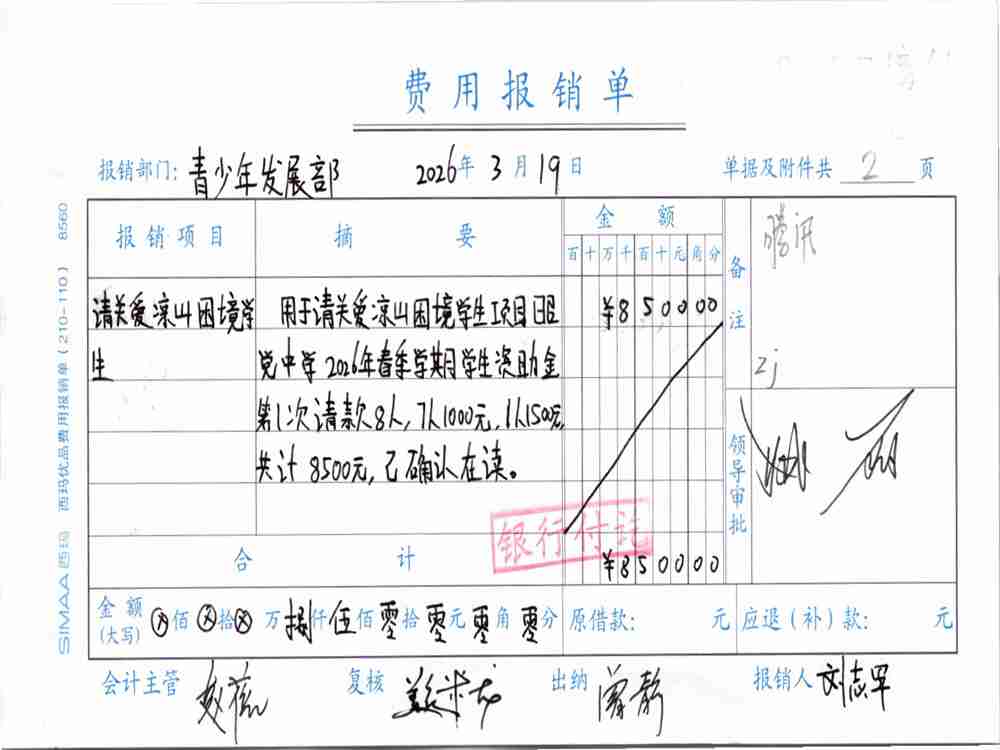 费用报销单
报销部门：青少年发展部 2026年 3月19日 单据及附件共 2 页
报销项目 摘要 金额 备注
百十万千百十元角分
腾讯
请关爱凉山困境学
生
用于请关爱凉山困境学生项目日
党中学2026年春季学期学生资助金
第1次请款8人，7人1000元，1人1500元，
共计8500元，已确认在读。
¥850000
zj
领导审批
银行付讫
合计 ¥850000
金额(大写) ⊗佰⊗拾⊗万捌仟伍佰零拾零元零角零分 原借款： 元 应退（补）款： 元
会计主管 复核 出纳 曾静 报销人 刘志罕
SIMAA西玛 西玛优品费用报销单（210-110） 8560